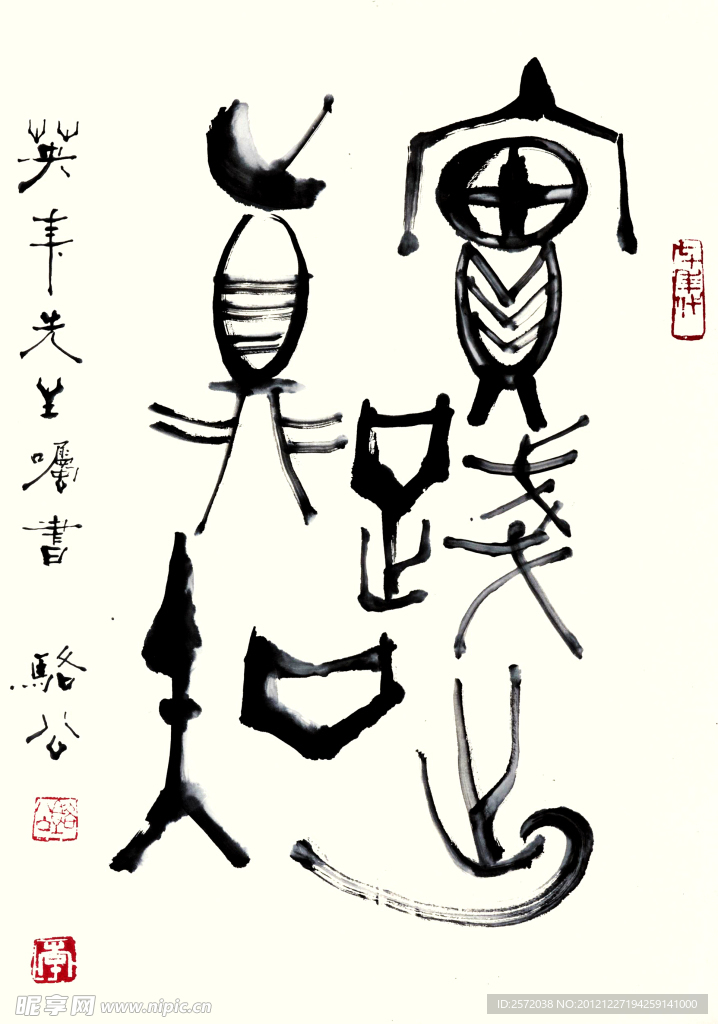 實踐出
真知
英 先生囑書 駱公
昵享网 www.nipic.cn
ID:2572038 NO:20121227194259141000